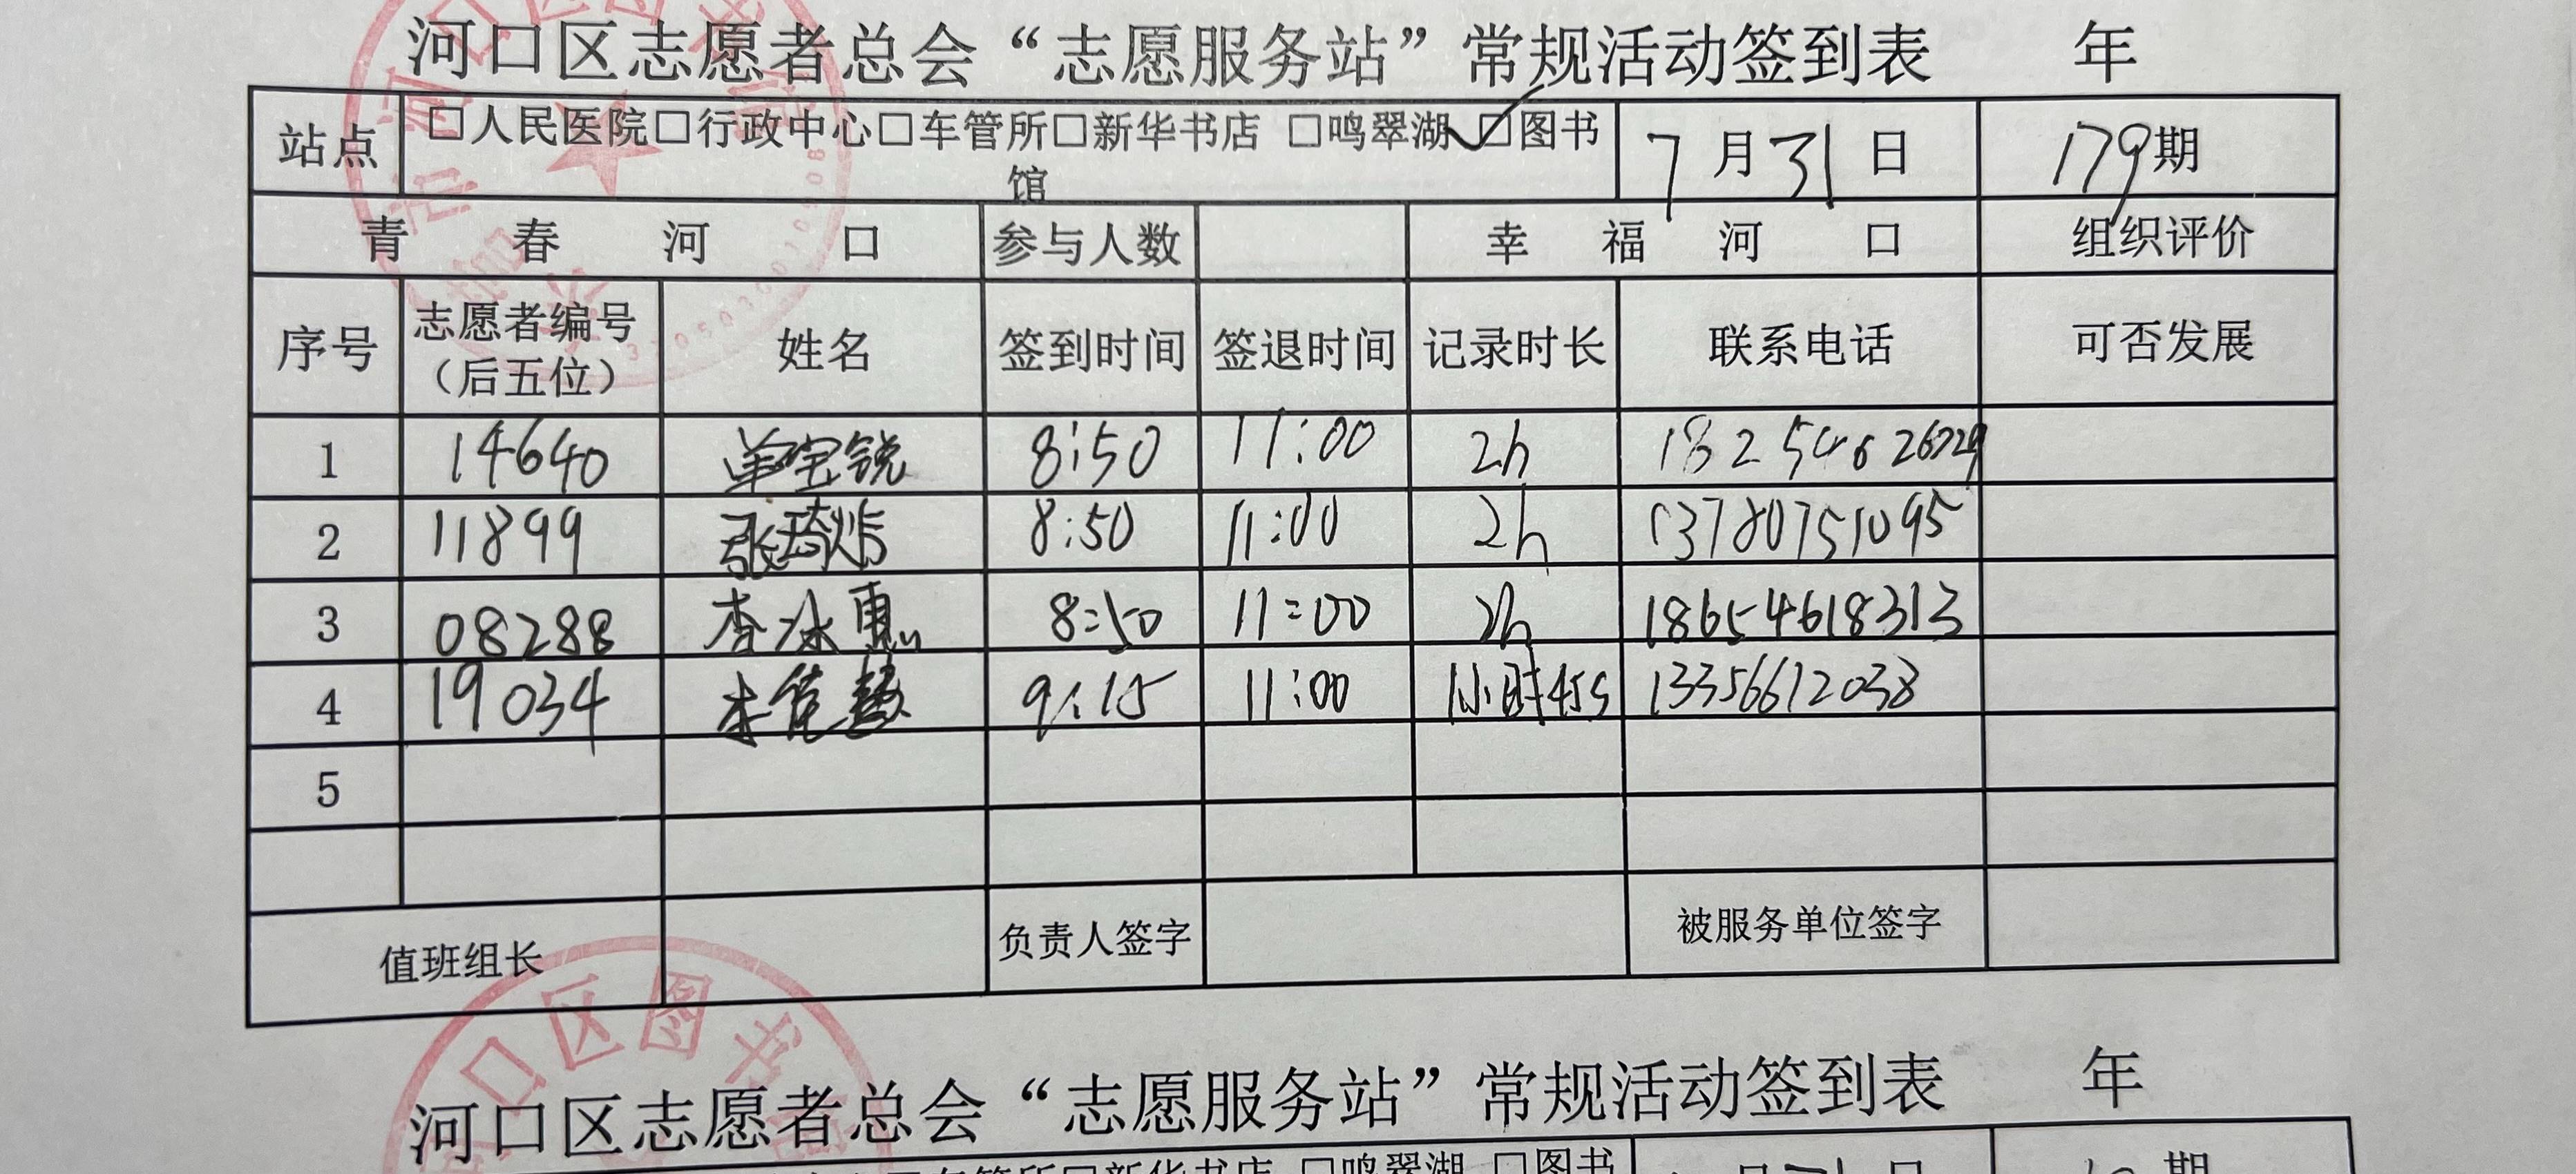 河口区志愿者总会“志愿服务站”常规活动签到表 年
站点 □人民医院□行政中心□车管所□新华书店 □鸣翠湖 ☑图书馆 7月31日 179期
青春河口 参与人数 幸福河口 组织评价
序号 志愿者编号（后五位） 姓名 签到时间 签退时间 记录时长 联系电话 可否发展
1 14640 单宝锐 8:50 11:00 2h
2 11899 张琦 8:50 11:00 2h 13780751095
3 08288 李冰惠 8:50 11:00 2h 18654618313
4 19034 9:15 11:00 1小时45 13356612038
5
值班组长 负责人签字 被服务单位签字
河口区图书
河口区志愿者总会“志愿服务站”常规活动签到表 年
车管所□新华书店 □鸣翠湖 □图书 月 日 期